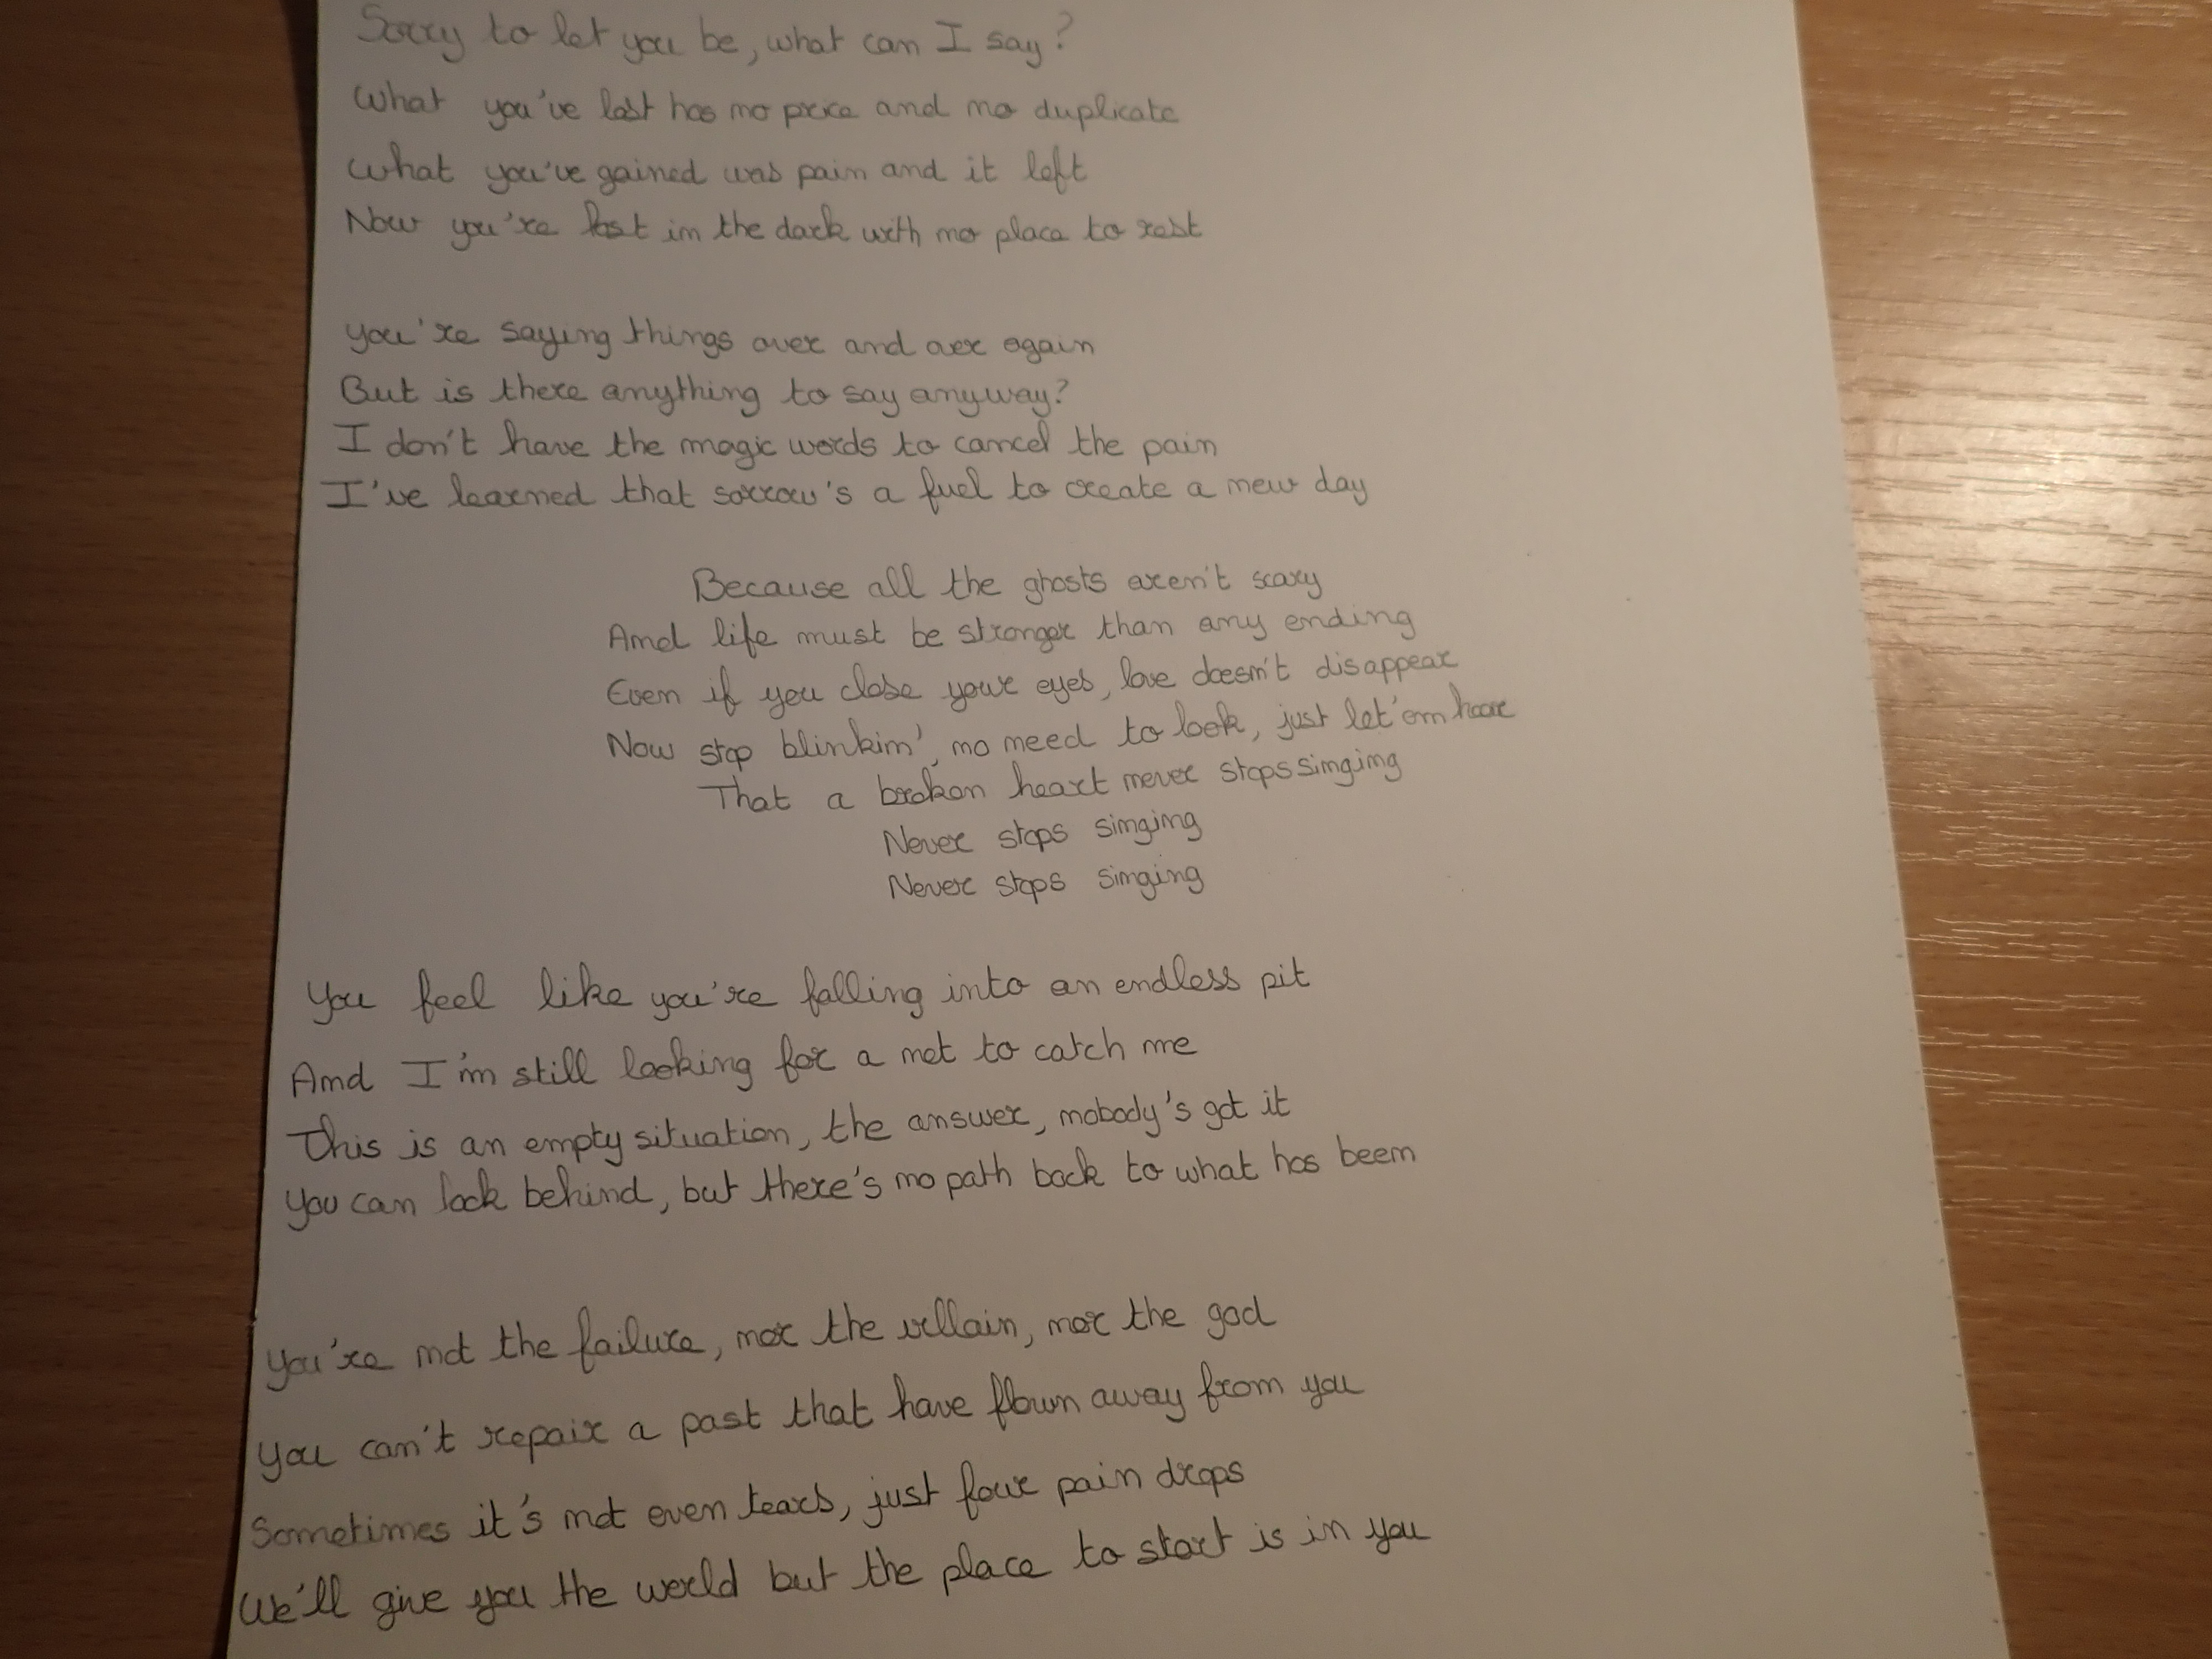 Sorry to let you be, what can I say?
What you've lost has no price and no duplicate
What you've gained was pain and it left
Now you're lost in the dark with no place to rest
You're saying things over and over again
But is there anything to say anyway?
I don't have the magic words to cancel the pain
I've learned that sorrow's a fuel to create a new day
Because all the ghosts aren't scary
And life must be stronger than any ending
Even if you close your eyes, love doesn't disappear
Now stop blinkin', no need to look, just let'em hear
That a broken heart never stops singing
Never stops singing
Never stops singing
You feel like you're falling into an endless pit
And I'm still looking for a net to catch me
This is an empty situation, the answer, nobody's got it
You can look behind, but there's no path back to what has been
You're not the failure, nor the villain, nor the god
You can't repair a past that have flown away from you
Sometimes it's not even tears, just four pain drops
We'll give you the world but the place to start is in you